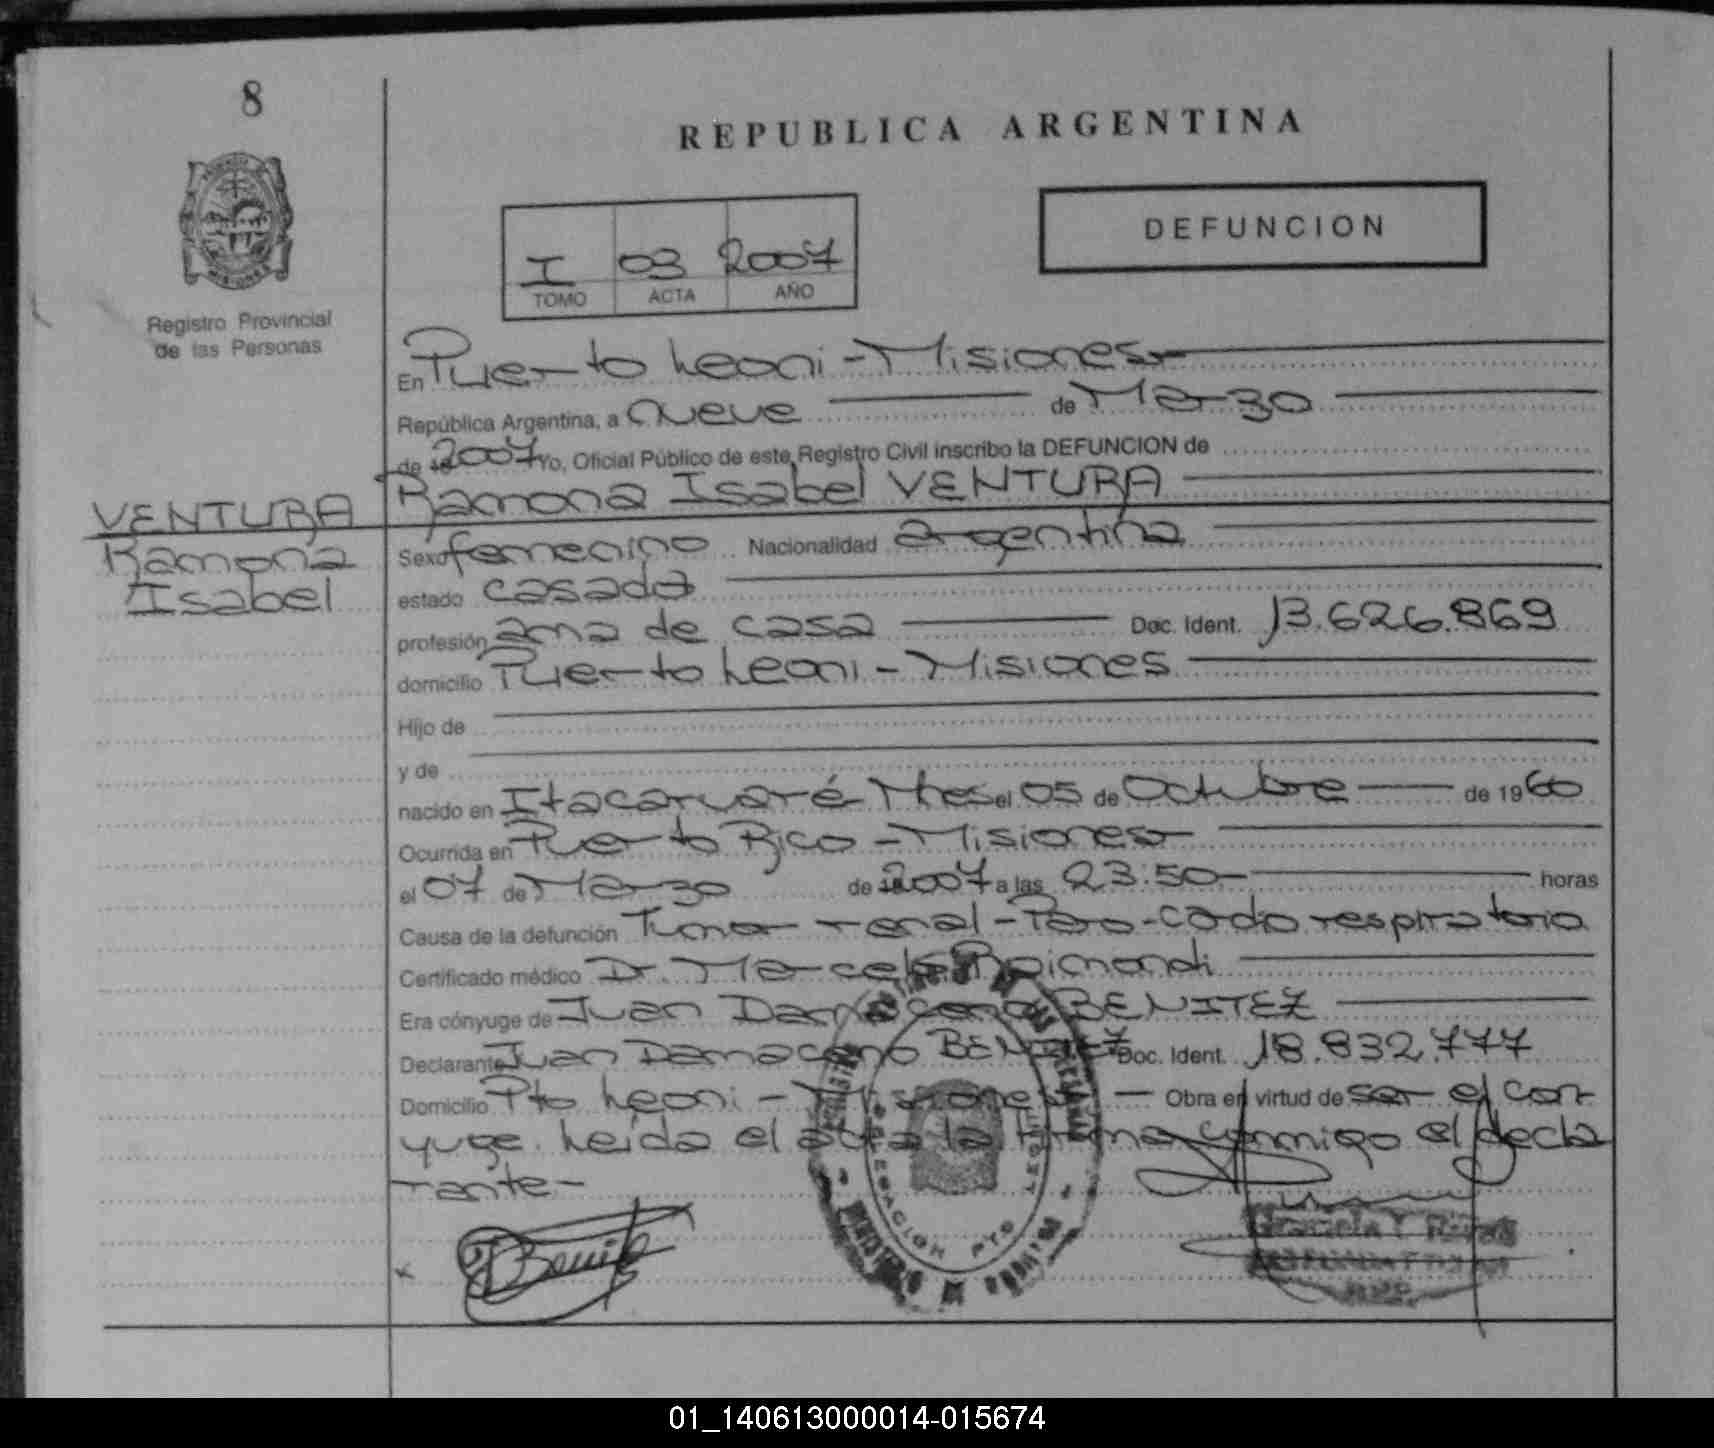 8
REPUBLICA ARGENTINA
DEFUNCION
I 03 2007
TOMO ACTA AÑO
Registro Provincial
de las Personas
En Puerto Leoni - Misiones
República Argentina, a nueve de Marzo
de 19 2007 Yo, Oficial Público de este Registro Civil inscribo la DEFUNCION de
Ramona Isabel VENTURA
VENTURA
Ramona
Isabel
Sexo femenino Nacionalidad argentina
estado casada
profesión ama de casa Doc. Ident. 13.626.869
domicilio Puerto Leoni - Misiones
Hijo de
y de
nacido en Itacaruaré Mnes el 05 de Octubre de 1960
Ocurrida en Puerto Rico - Misiones
el 07 de Marzo de 19 2007 a las 23:50 horas
Causa de la defunción Tumor renal - Paro-cardio respiratorio
Certificado médico Dr. Marcelo Raimondi
Era cónyuge de Juan Damaceno BENITEZ
Declarante Juan Damaceno BENITEZ Doc. Ident. 18.832.777
Domicilio Pto Leoni - Misiones - Obra en virtud de ser el con-
yuge. Leída el acta la firma conmigo el decla
rante-
x JBenite
DELEGACION PTO LEONI
MINISTERIO DE
01_140613000014-015674